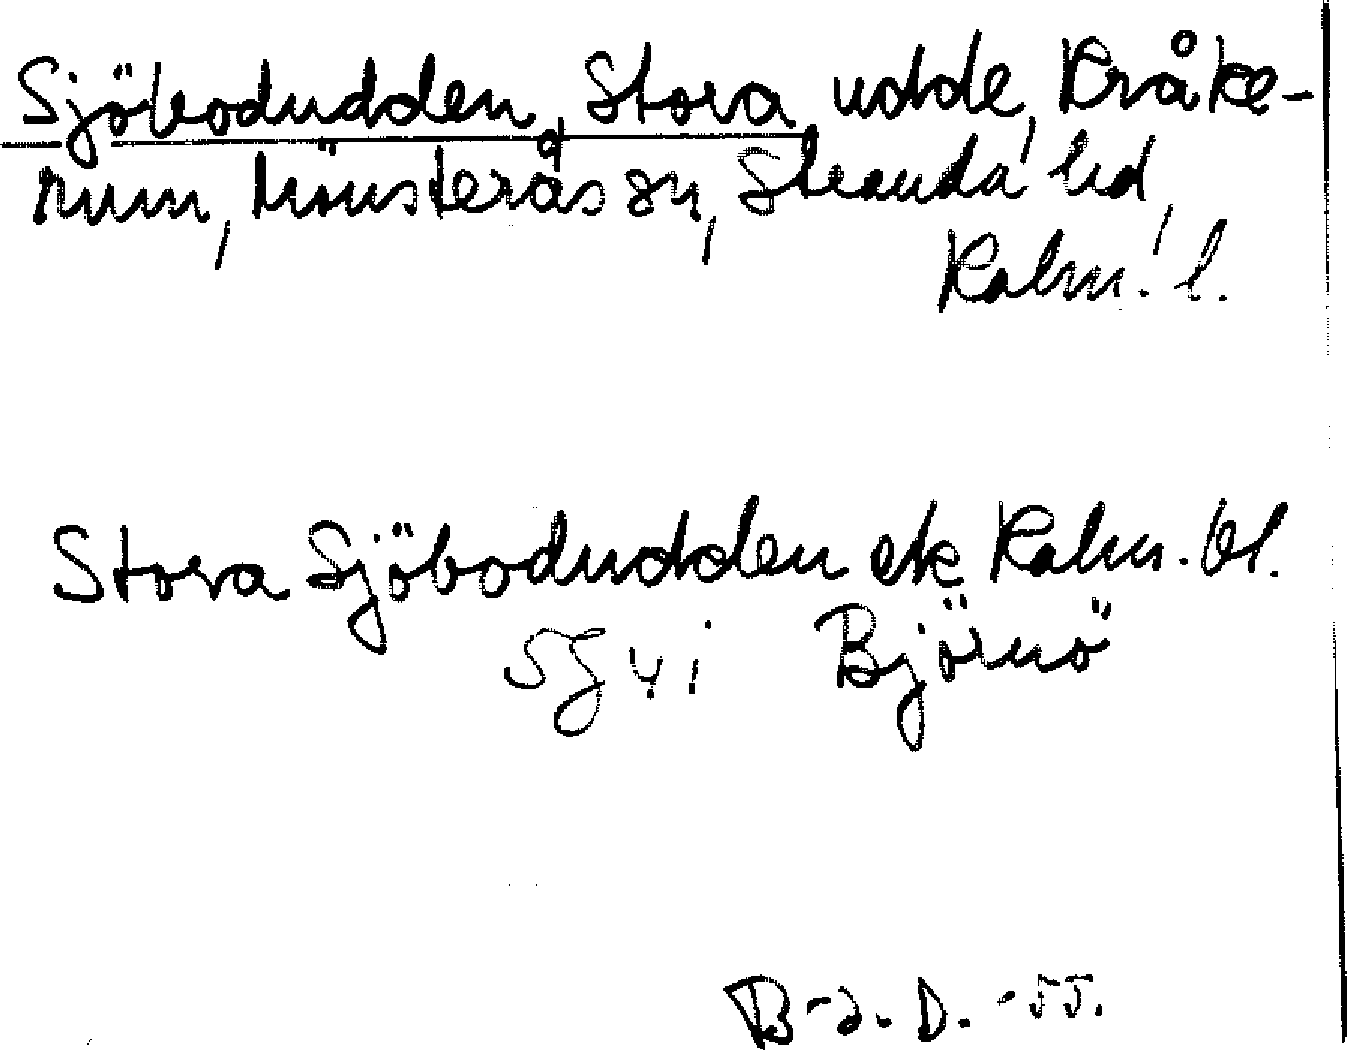 Sjöbodudden, Stora, udde, Kråke-
rum, Mönsterås sn, Stranda hd,
Kalm. l.
Stora Sjöbodudden ek Kalm. bl.
5 g 4 i Björnö
B-a. D. -55.